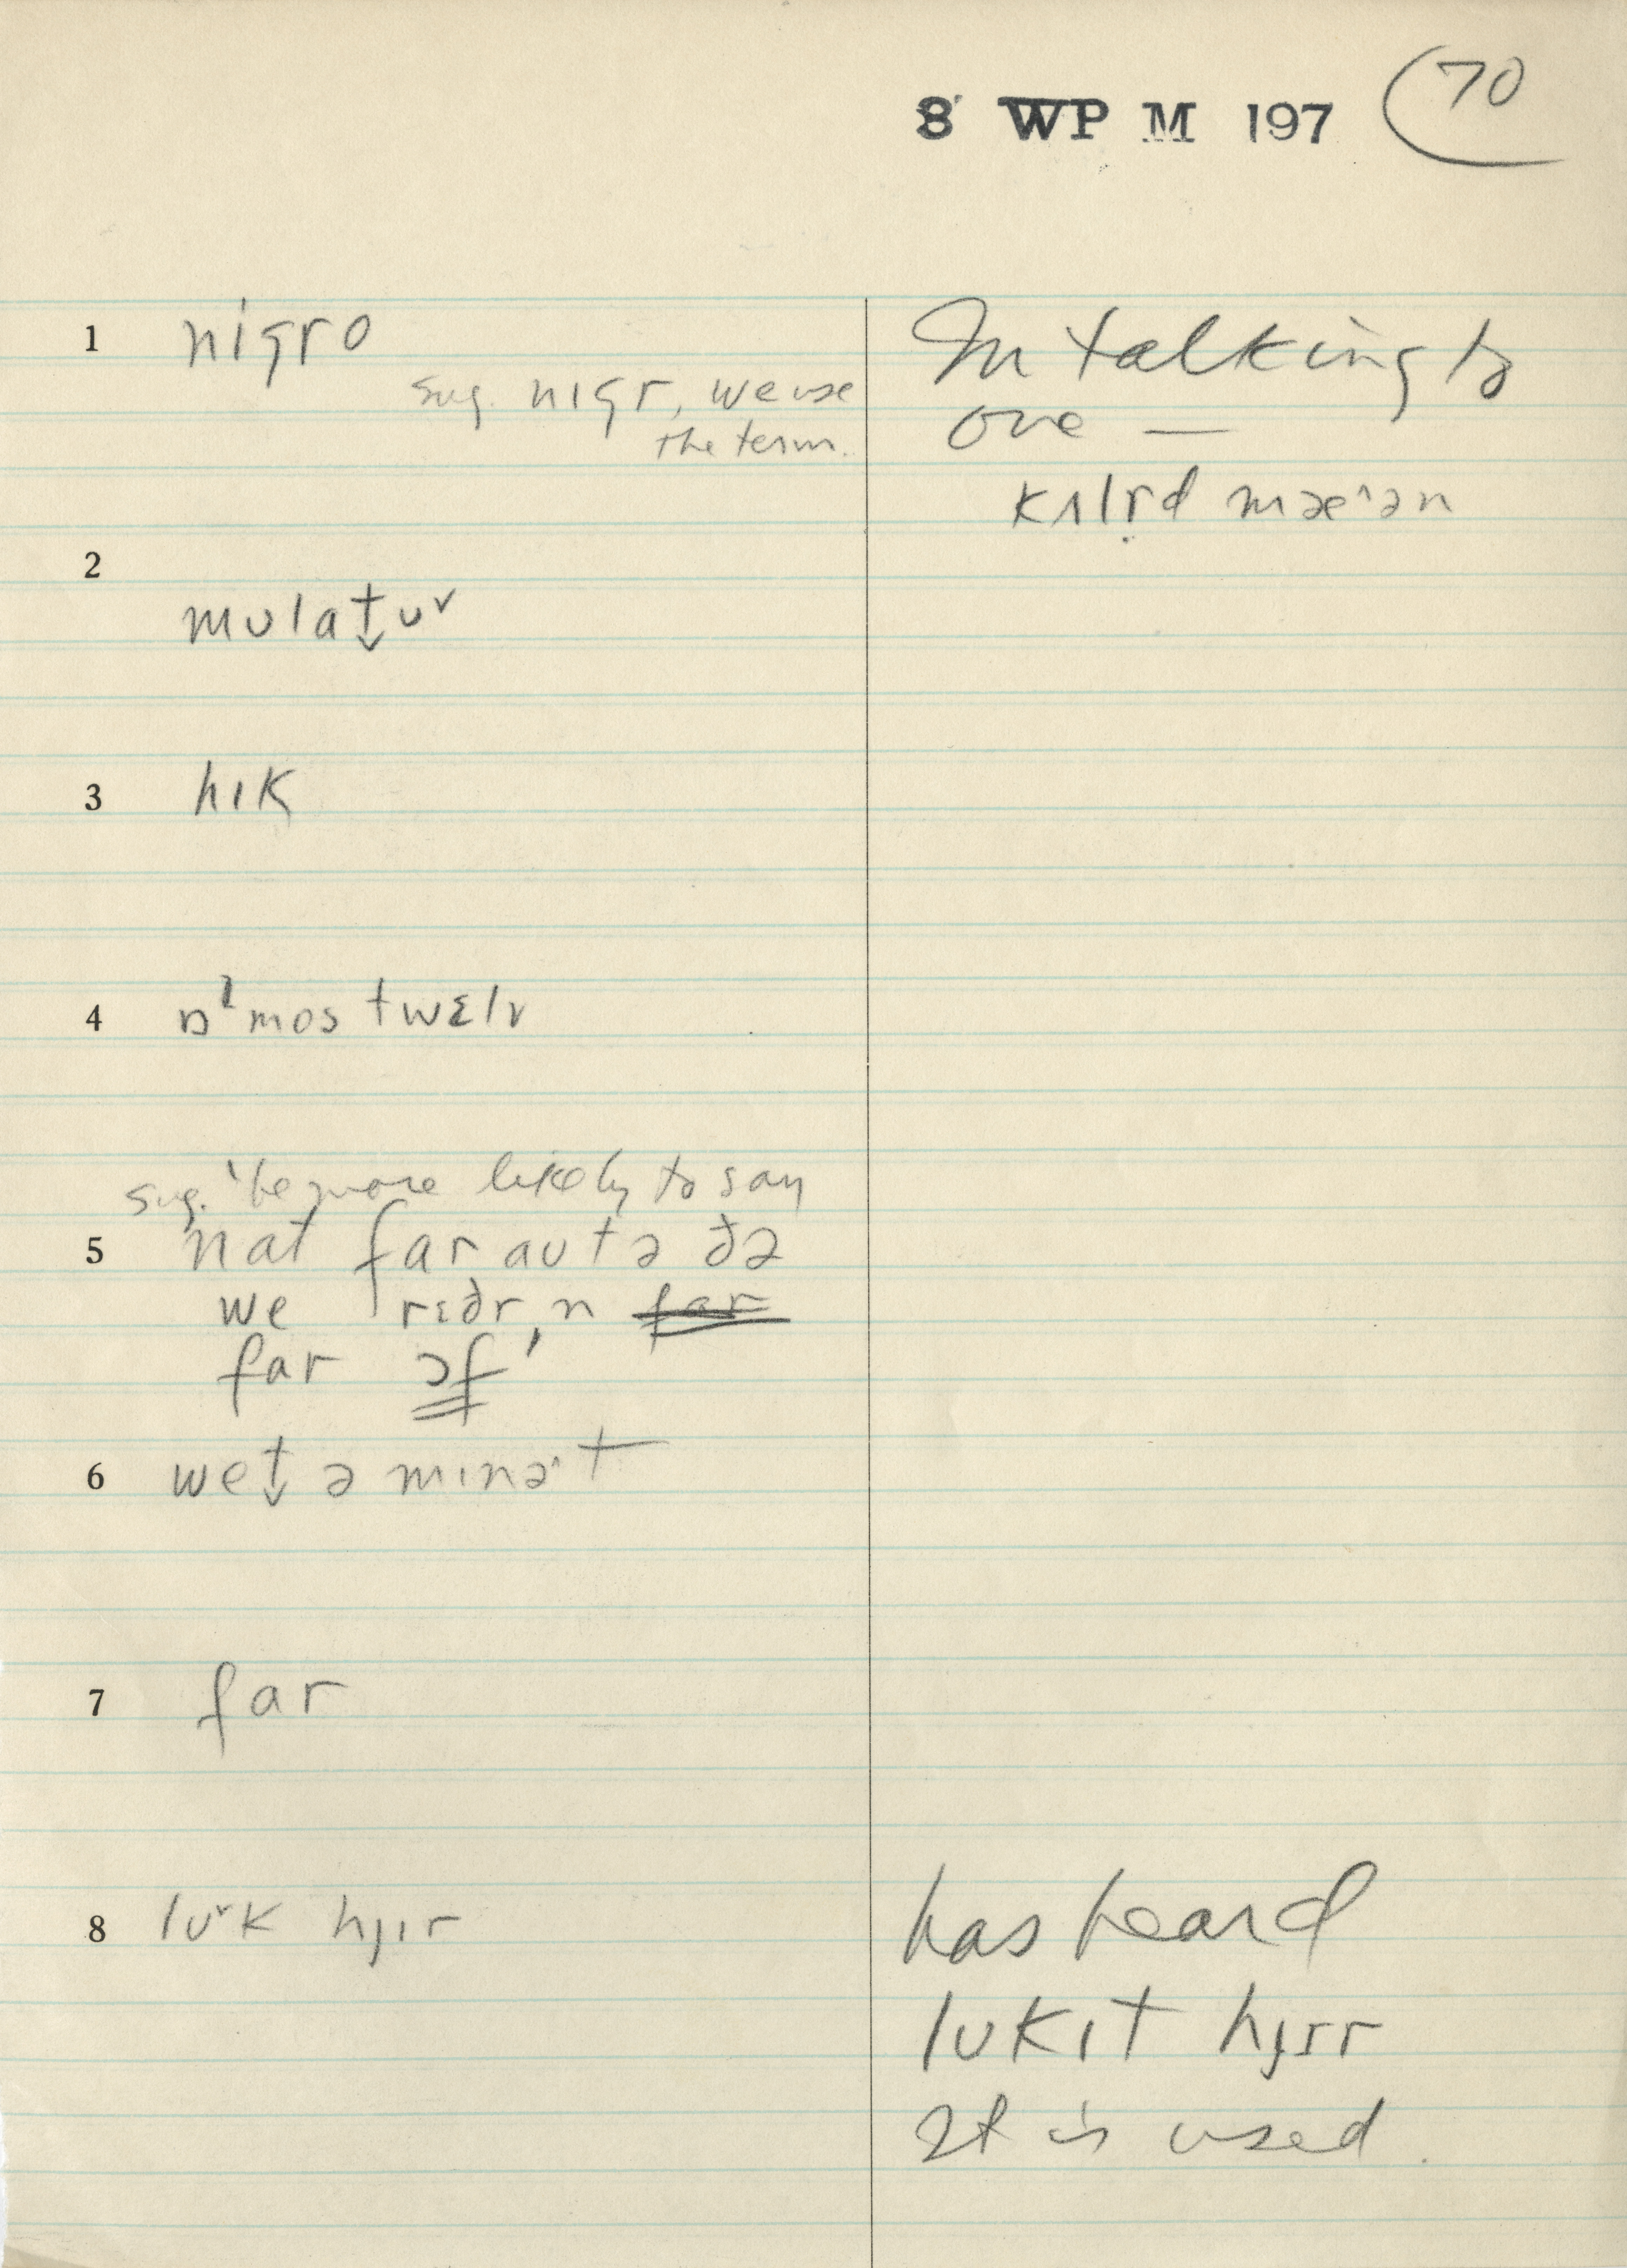 8 WP M 197 (70
1 nigro
sug. nɪgr, we use
the term.
In talking to
one —
kʌlṛd mæ^ən
2
mʊlat̬ʊˇ
3 hɪk
4 ɒˡmos twɛlv
sug. 'be more likely to say
5 nat far aʊt ə ðə
we rɛðr, n far
far ɔf'
6 wet̬ ə mɪnə^t
7 far
8 lʊˇk hjɪr
has heard
lʊkɪt hjɪr
It is used.